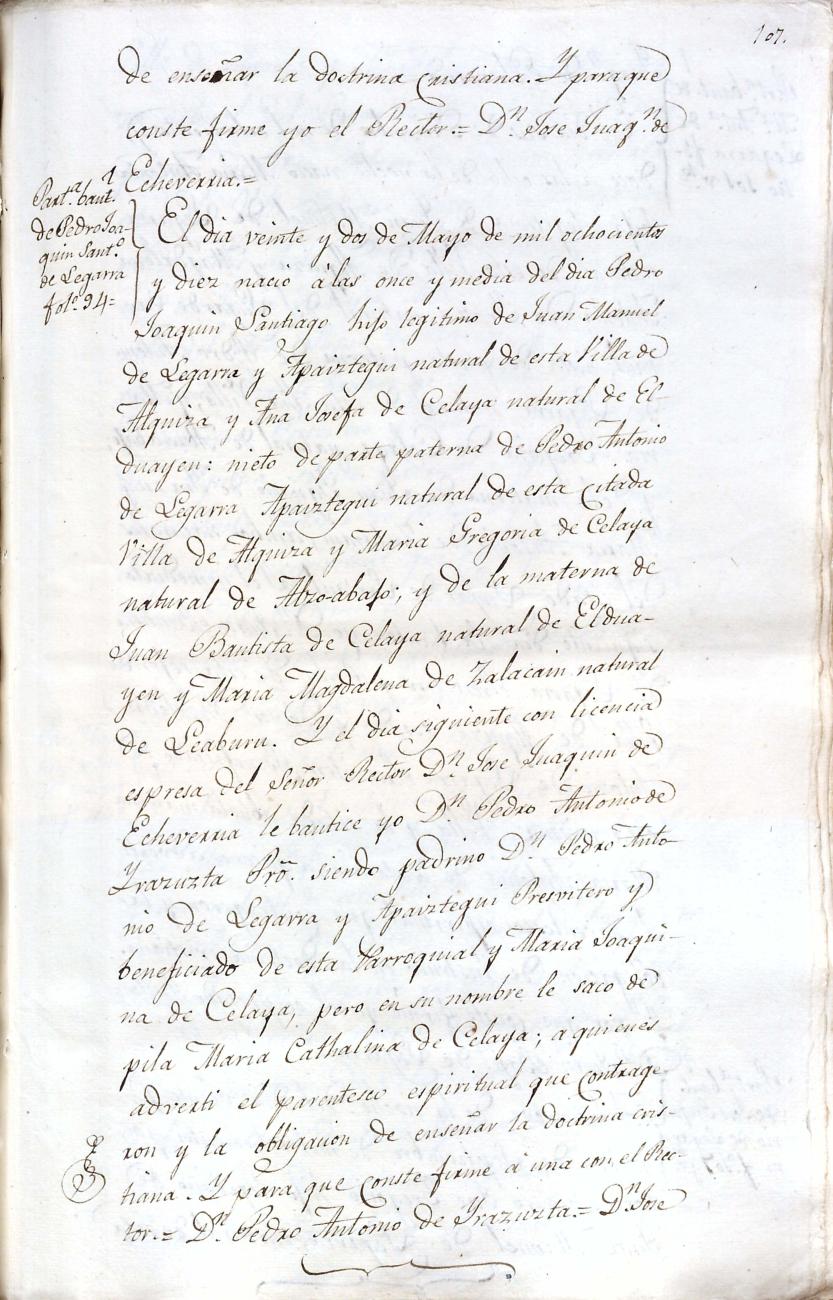 107.
de enseñar la doctrina cristiana. Y para que
conste firme yo el Rector.= Dn. Jose Juaqn. de
Echeverria.=
Part.a baut.l
de Pedro Joa-
quin Sant.o
de Legarra
fol.o 94=
El dia veinte y dos de Mayo de mil ochocientos
y diez nació á las once y media del dia Pedro
Joaquin Santiago hijo legitimo de Juan Manuel
de Legarra y Apaiztegui natural de esta Villa de
Alquiza y Ana Josefa de Celaya natural de El-
duayen: nieto de parte paterna de Pedro Antonio
de Legarra Apaiztegui natural de esta citada
Villa de Alquiza y Maria Gregoria de Celaya
natural de Alzo-abajo; y de la materna de
Juan Bautista de Celaya natural de Eldua-
yen y Maria Magdalena de Zalacain natural
de Leaburu. Y el dia siguiente con licencia
espresa del Señor Rector Dn. Jose Juaquin de
Echeverria le bautice yo Dn. Pedro Antonio de
Yrazuzta Prõ. siendo padrino Dn. Pedro Anto-
nio de Legarra y Apaiztegui Presvitero y
beneficiado de esta Parroquial y Maria Joaqui-
na de Celaya, pero en su nombre le saco de
pila Maria Cathalina de Celaya; á quienes
adverti el parentesco espiritual que contrage-
ron y la obligacion de enseñar la doctrina cris-
tiana. Y para que conste firme á una con el Rec-
tor.= Dn. Pedro Antonio de Yrazuzta.= Dn. Jose